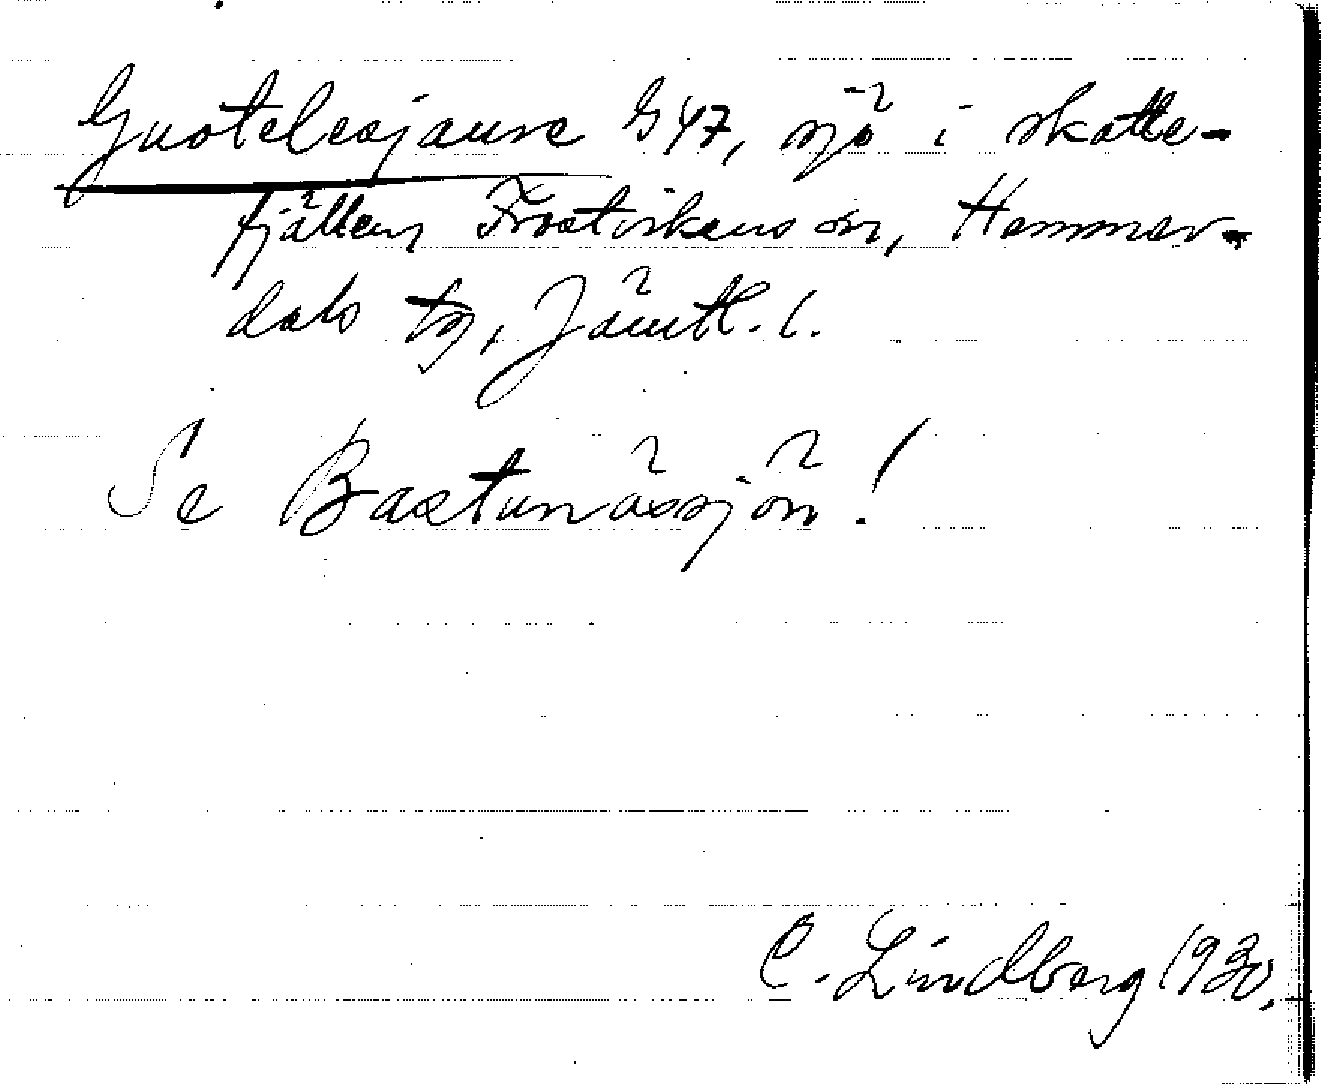 Guotelesjaure G47, sjö i skatte-
fjällen, Frostvikens sn, Hammer-
dals tg, Jämtl. l.
Se Bastunässjön!
C. Lindberg 1930.